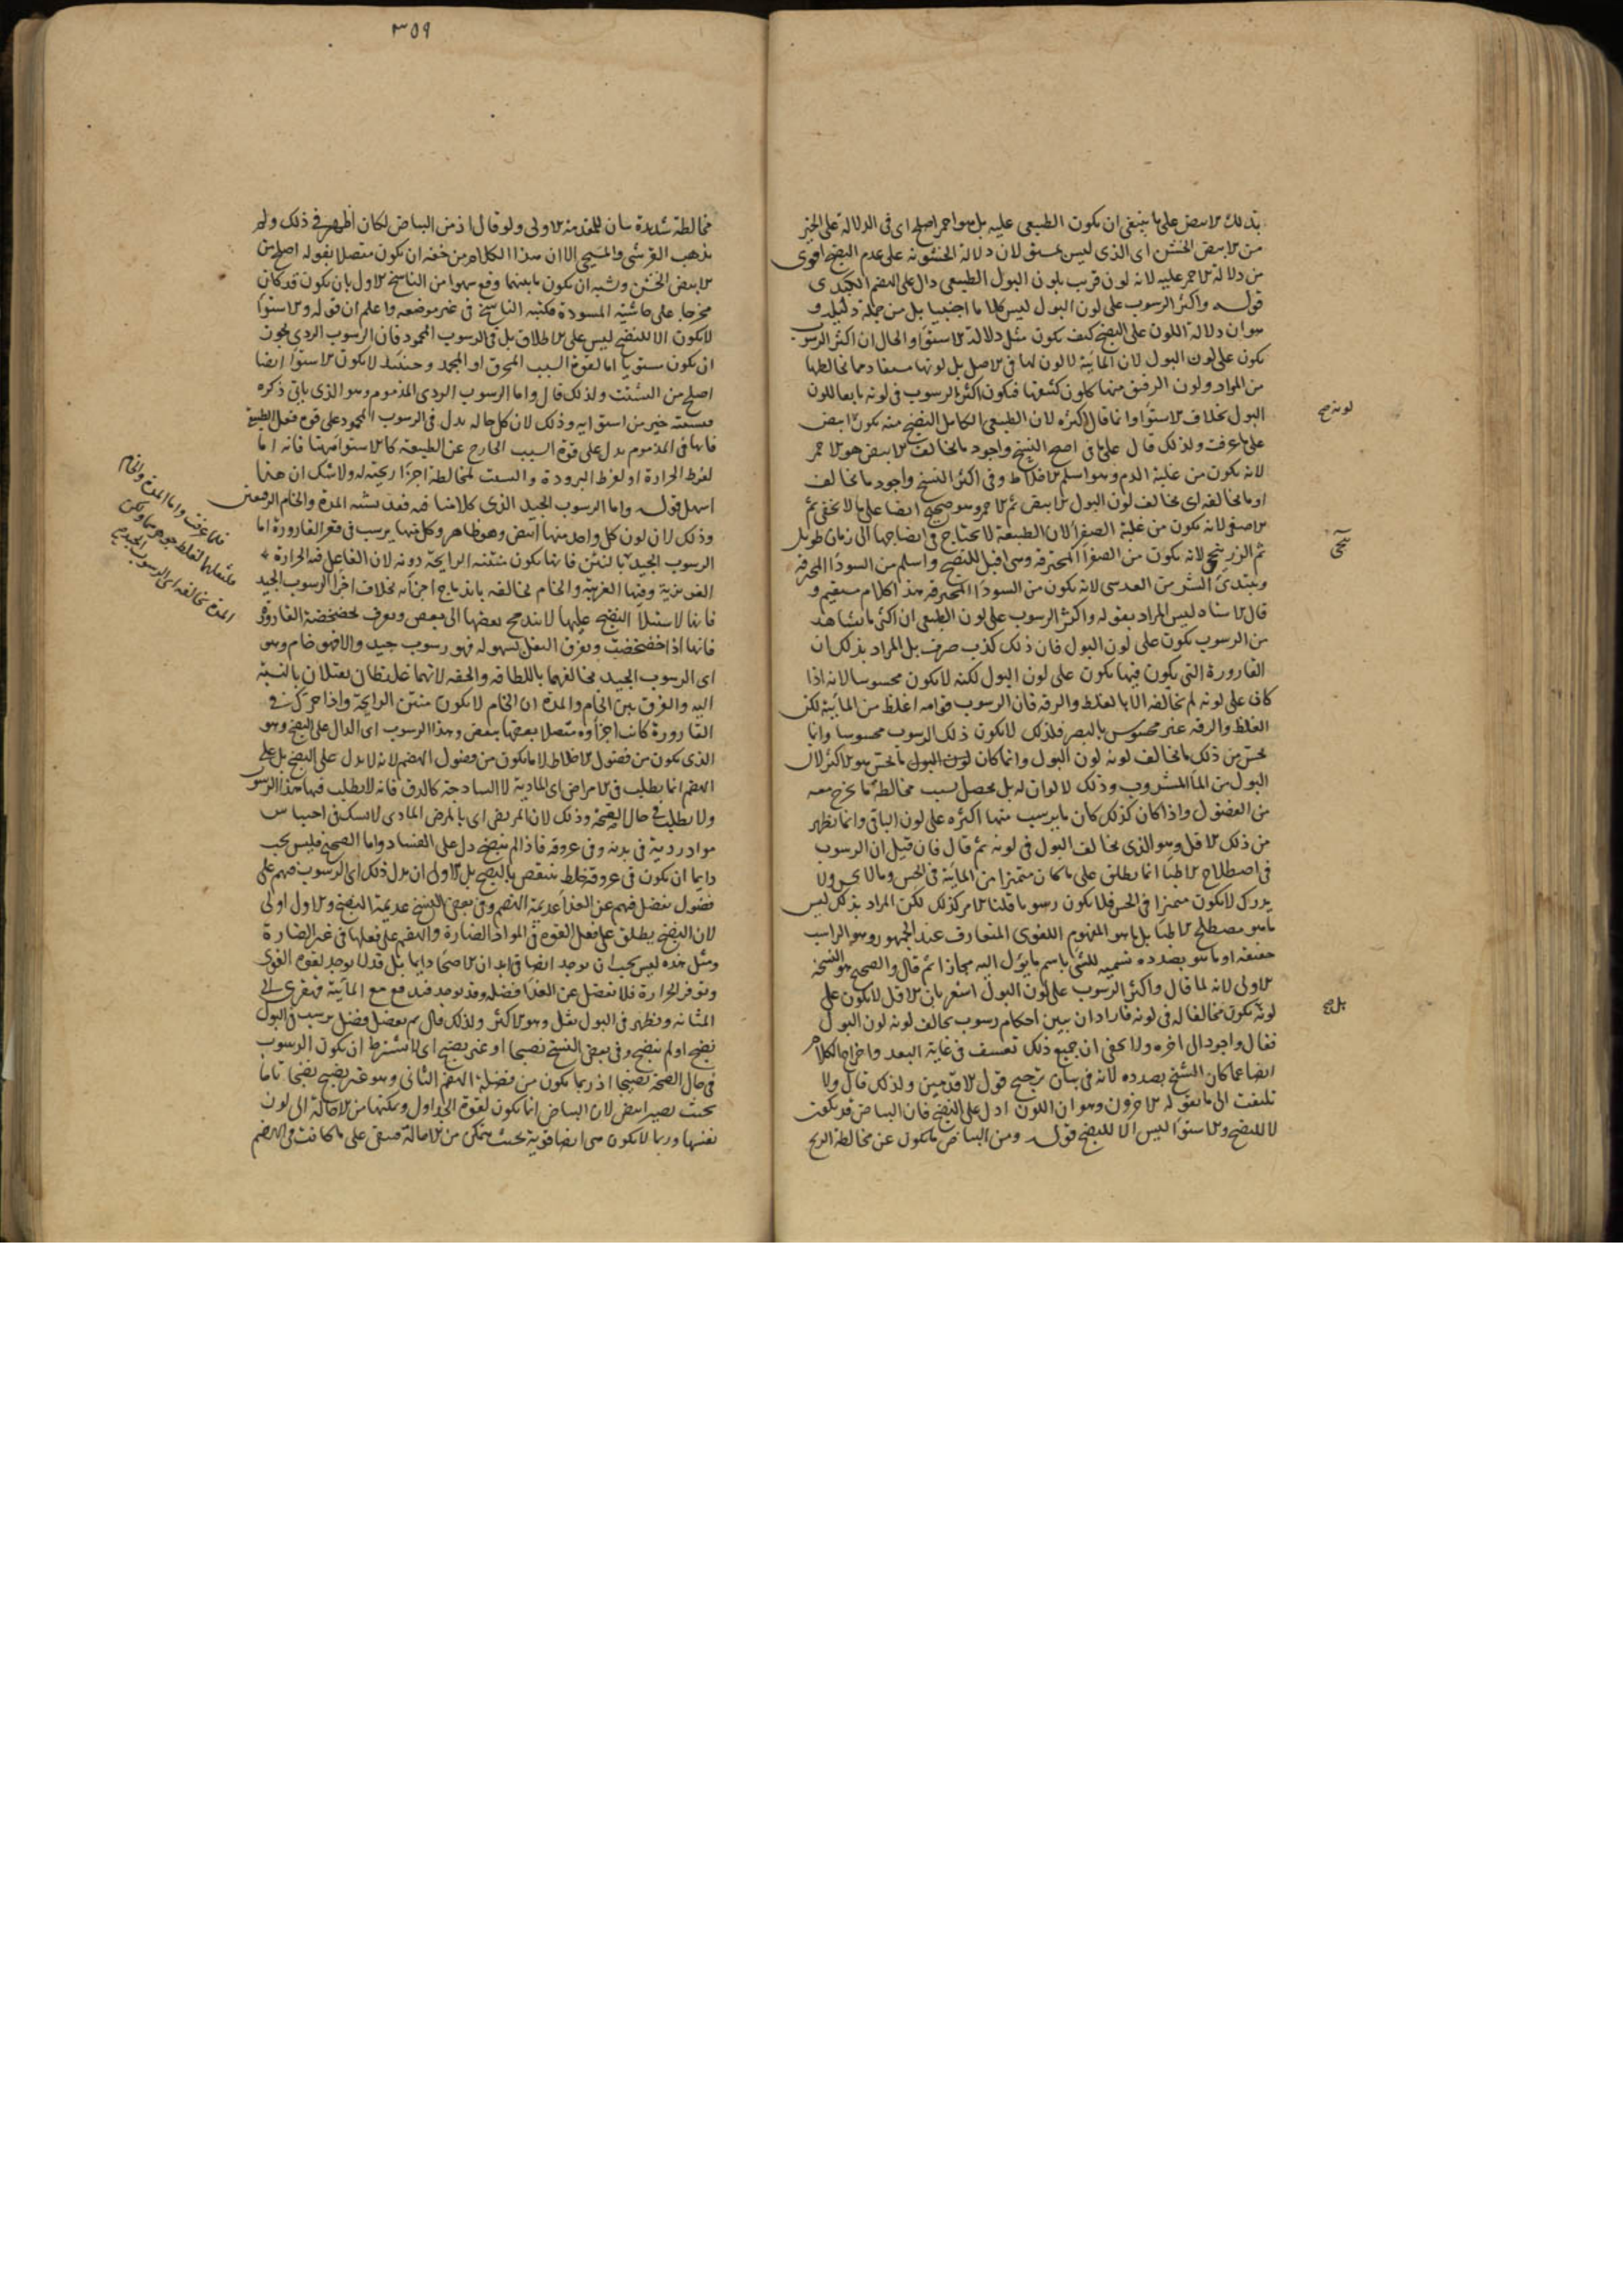 بذلك الابيض على ما ينبغى ان يكون الطبيعى عليه بل هو احمر اصلح اى فى الدلالة على الخير
من الابيض الخشن اى الذى ليس بمستو لان دلالة الخشونة على عدم النضج اقوى
من دلالة الاحمر عليه لانه لون قريب بلون البول الطبيعى دال على الهضم الكبدى
قوله واكثر الرسوب على لون البول ليس كلاما اجنبيا بل من جملة دليله و
هو ان دلالة اللون على النضج كيف يكون مثل دلالة الاستواء والحال ان اكثر الرسوب
يكون على لون البول لان المائية لا لون لها فى الاصل بل لونها مستفاد مما يخالطها
من المواد ولون الرقيق منها كلون كثيفها فيكون اكثر الرسوب فى لونه تابعا للون
البول بخلاف الاستواء وانما قال اكثره لان الطبيعى الكامل النضج منه يكون ابيض
على ما عرفت ولذلك قال على ما فى اصح النسخ واجود ما يخالف الابيض هو الاحمر
لانه يكون من غلبة الدم وهو اسلم الاخلاط وفى اكثر النسخ واجود ما يخالف
او ما يخالفه اى يخالف لون البول الابيض ثم الاحمر وهو صحيح ايضا على ما لا يخفى ثم
الاصفر لانه يكون من غلبة الصفراء لان الطبيعة لا تحتاج فى انضاجها الى زمان طويل
ثم الزرنيخى لانه يكون من الصفراء المحترقة وهى اقبل للنضج واسلم من السوداء المحترقة
ويبتدئ الشر من العدسى لانه يكون من السوداء المحترقة هذا كلام مستقيم و
قال الاستاد ليس المراد بقوله واكثر الرسوب على لون الطبيعى ان اكثر ما يشاهد
من الرسوب يكون على لون البول فان ذلك كذب صرف بل المراد بذلك ان
القارورة التى يكون فيها يكون على لون البول لكنه لا يكون محسوسا لانه اذا
كان على لونه لم يخالفه الا بالغلظ والرقة فان الرسوب قوامه اغلظ من المائية لكن
الغلظ والرقة غير محسوس بالبصر فلذلك لا يكون ذلك الرسوب محسوسا وانما
يحس من ذلك ما يخالف لونه لون البول وانما كان لون البول ما يحس هو الاكثر لان
البول من الماء المشروب وذلك لا لون له بل يحصل بسبب مخالطة ما يخرج معه
من الفضول واذا كان كذلك كان ما يرسب منها اكثره على لون الباقى وانما يظهر
من ذلك الاقل وهو الذى يخالف البول فى لونه ثم قال فان قيل ان الرسوب
فى اصطلاح الاطباء انما يطلق على ما كان متميزا من المائية فى الحس وما لا يحس ولا
يدرك لا يكون متميزا فى الحس فلا يكون رسوبا قلنا الامر كذلك لكن المراد بذلك ليس
ما هو مصطلح الاطباء بل ما هو المفهوم اللغوى المتعارف عند الجمهور وهو الراسب
حقيقة او ما هو بصدده تسمية للشئ باسم ما يؤل اليه مجازا ثم قال والصحيح هو النسخة
الاولى لانه لما قال واكثر الرسوب على لون البول اشعر بان الاقل لا يكون على
لونه بكون مخالفا له فى لونه فاراد ان يبين احكام رسوب يخالف لونه لون البول
فقال واجود الى اخره ولا يخفى ان جميع ذلك تعسف فى غاية البعد واخراج الكلام
ايضا عما كان الشيخ بصدده لانه فى بيان ترجيح قول الاقدمين ولذلك قال ولا
تلتفت الى ما يقوله الاخرون وهو ان اللون ادل على النضج فان البياض قد يكون
لا للنضج والاستواء ليس الا للنضج قوله ومن البياض ما يكون عن مخالطة الريح
لونه صح
بل صح
٣٥٩
مخالطة شديدة بيان للمقدمة الاولى ولو قال اذ من البياض لكان اظهر فى ذلك ولم
يذهب القرشى والمسيحى الا ان هذا الكلام من حقه ان يكون متصلا بقوله اصلح من
الابيض الخشن ويشبه ان يكون ما بينهما وقع سهوا من الناسخ الاول بان يكون قد كان
مخرجا على حاشية المسودة فكتبه الناسخ فى غير موضعه واعلم ان قوله والاستواء
لا يكون الا للنضج ليس على الاطلاق بل فى الرسوب المحمود فان الرسوب الردى يجوز
ان يكون مستويا اما لقوة السبب المحرق او المجمد وحينئذ لا يكون الاستواء ايضا
اصلح من التشتت ولذلك قال واما الرسوب الردى المذموم وهو الذى ياتى ذكره
فتشتته خير من استوائه وذلك لان كل حاله يدل فى الرسوب المحمود على قوة فعل الطبيعة
فانها فى المذموم يدل على قوة السبب الخارج عن الطبيعة كالاستواء ههنا فانه اما
لفرط الحرارة او لفرط البرودة والتشتت لمخالطة اجزاء ريحية له ولا شك ان هذا
اسهل قوله واما الرسوب الجيد الذى كلامنا فيه فقد تشبه المدة والخام الرقيقين
وذلك لان لون كل واحد منهما ابيض وهو ظاهر وكل منهما يرسب فى قعر القارورة اما
الرسوب الجيد بالنتن فانها يكون منتنة الرايحة دونه لان الفاعل فيه الحرارة
الغريزية وفيها الغريبة والخام يخالفه باندماج اجزائه بخلاف اجزاء الرسوب الجيد
فانها لاستيلاء النضج عليها لا يندمج بعضها الى بعض ويعرف بخضخضة القارورة
فانها اذا خضخضت وتفرق الثفل بسهولة فهو رسوب جيد والا فهو خام وهو
اى الرسوب الجيد مخالفهما باللطافة والخفة لانهما غليظان ثقيلان بالنسبة
اليه والفرق بين الخام والمدة ان الخام لا يكون منتن الرايحة واذا حرك فى
القارورة كانت اجزاؤه متصلا بعضها ببعض وهذا الرسوب اى الدال على النضج وهو
الذى يكون من فضول الاخلاط لا ما يكون من فضول الهضم لانه لا يدل على النضج بل على
الهضم انما يطلب فى الامراض اى المادية لا الساذجة كالدق فانه لا يطلب فيها هذا الرسوب
ولا يطلب فى حال الصحة وذلك لان المريض اى بالمرض المادى لا يشك فى احتباس
مواد ردية فى بدنه وفى عروقه فاذا لم ينضج دل على الفساد واما الصحيح فليس يجب
دايما ان يكون فى عروقه خلط ينتقص بالنضج بل الاولى ان يدل ذلك اى الرسوب فيهم على
فضول تفضل فيهم عن الغذاء عديمة الهضم وفى بعض النسخ عديمة النضج والاول اولى
لان النضج يطلق على فعل القوة فى المواد الضارة والهضم على فعلها فى غير الضارة
ومثل هذه ليس يجب ان توجد ايضا فى ابدان الاصحاء دايما بل قد لا يوجد لقوة القوى
وتوفر الحرارة فلا تفضل عن الغذاء فضلة وقد توجد فتدفع مع المائية فتجرى الى
المثانة ويظهر فى البول ثفل وهو الاكثر ولذلك قال ثم يفضل فضل يرسب فى البول
نضج او لم ينضج وفى بعض النسخ نضيجا او غير نضيج اى لا يشترط ان يكون الرسوب
فى حال الصحة نضيجا اذ ربما يكون من فضلة الهضم الثانى وهو غير نضيج نضجا تاما
بحيث يصير ابيض لان البياض انما يكون لقوة الجداول وتمكنها من الاحالة الى لون
نفسها وربما لا يكون هى ايضا قوية بحيث يتمكن من الاحالة فيبقى على ما كانت فى الهضم
فلما عرفت واما المدة والخام
فلثقلهما لغلظ جوهرهما ولكن
المدة تخالفه اى الرسوب الجيد